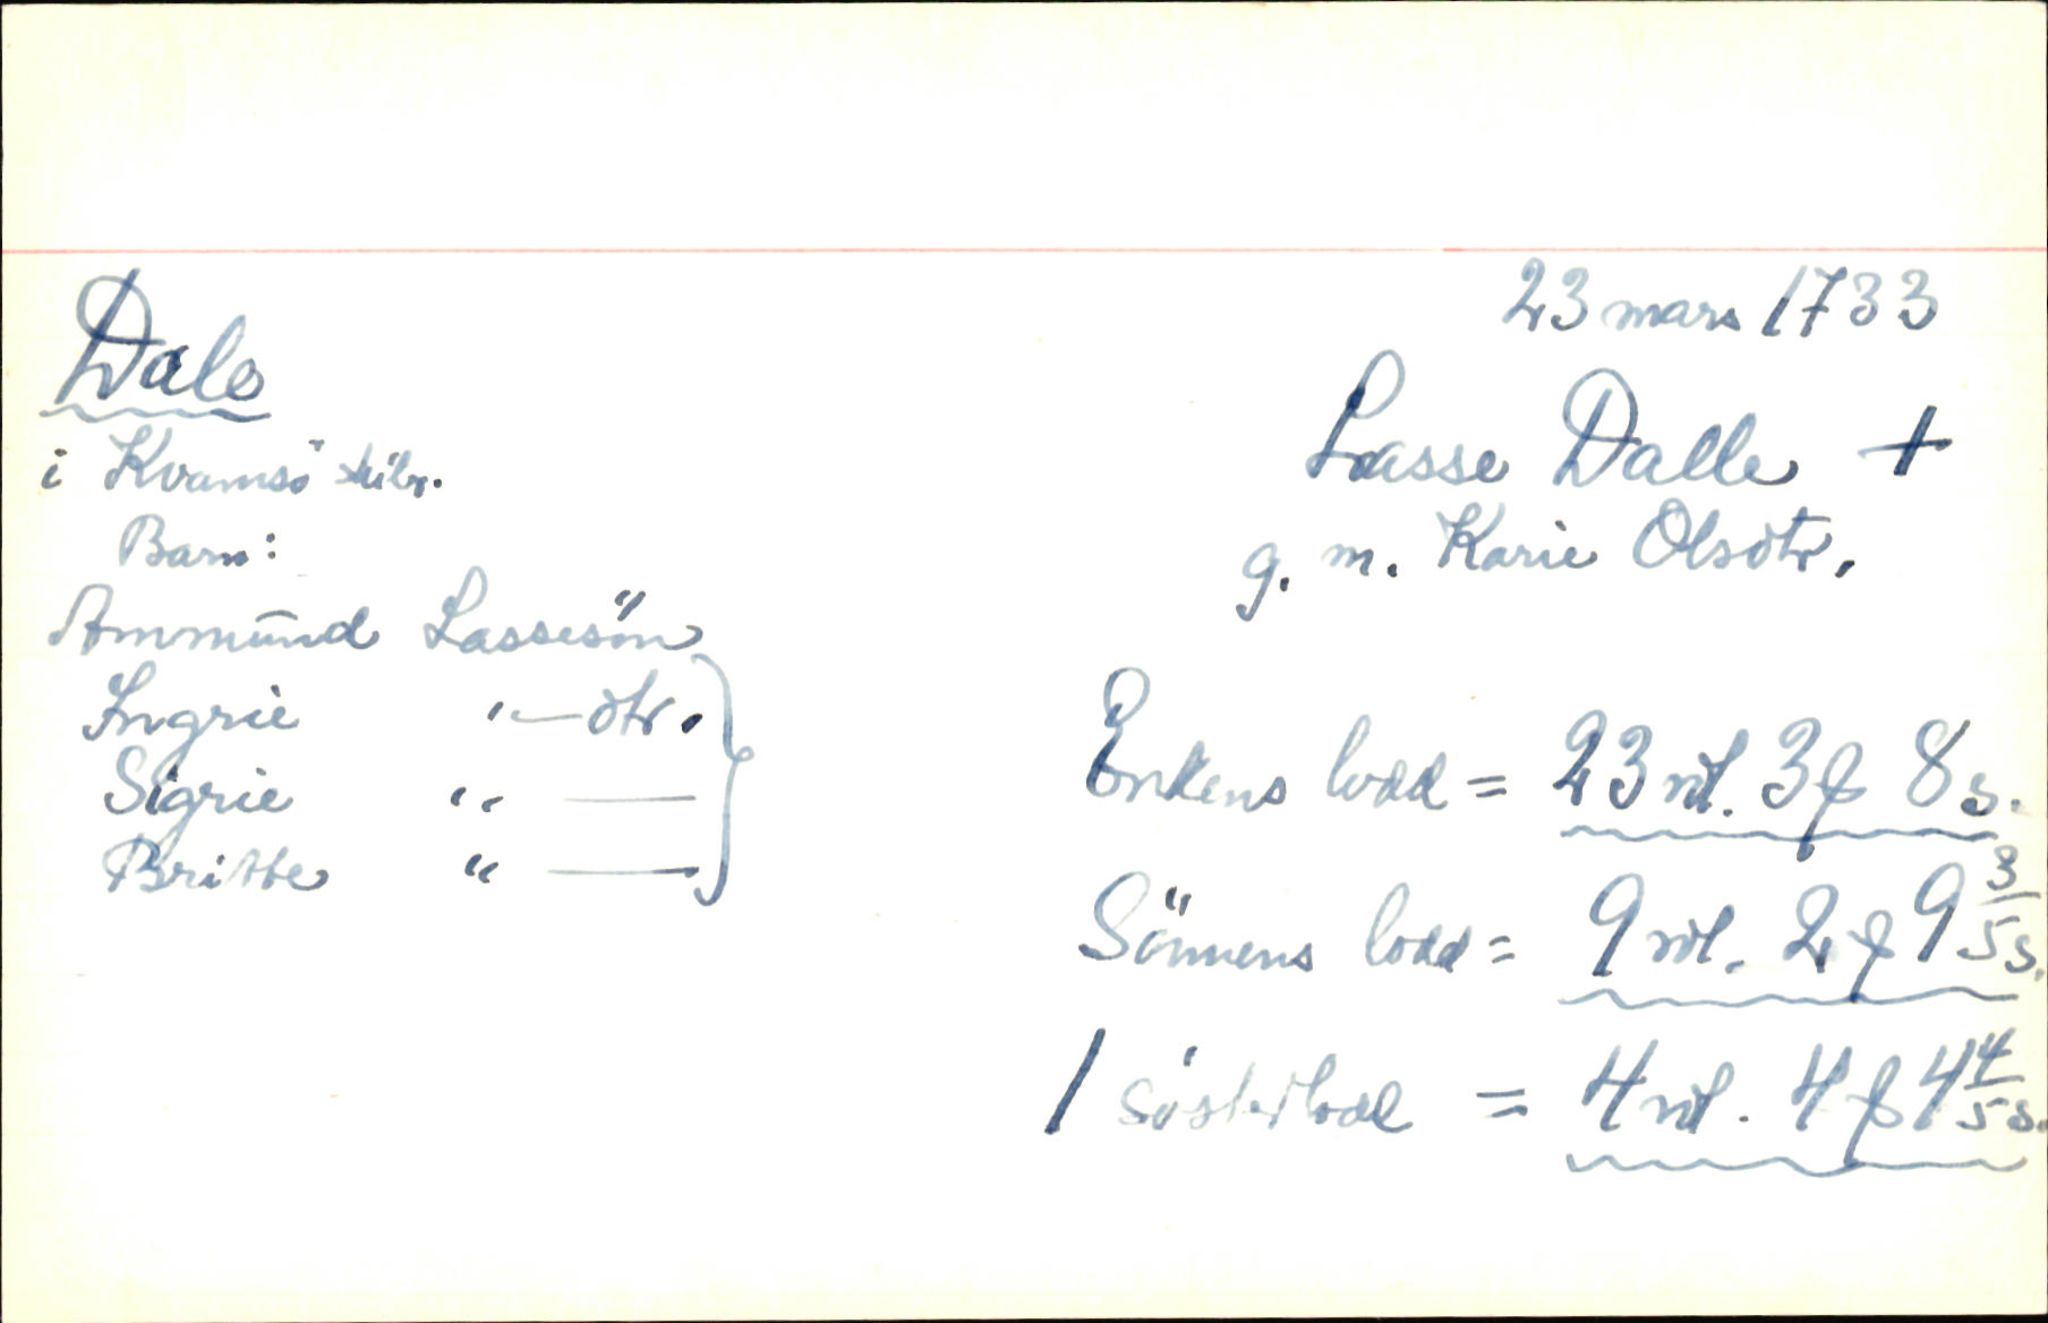 23 mars 1733
Dale
i Kvamsö skibr.
Barn:
Ammund Lassesön
Ingrie "—dtr.
Sigrie " —
Britte " —
Lasse Dalle +
g. m. Karie Olsdtr.
Enkens lodd = 23 rd. 3 ƒ 8 s.
Sönnens lodd = 9 rd. 2 ƒ 9 3/5 s.
1 sösterlodd = 4 rd. 4 ƒ 4 4/5 s.